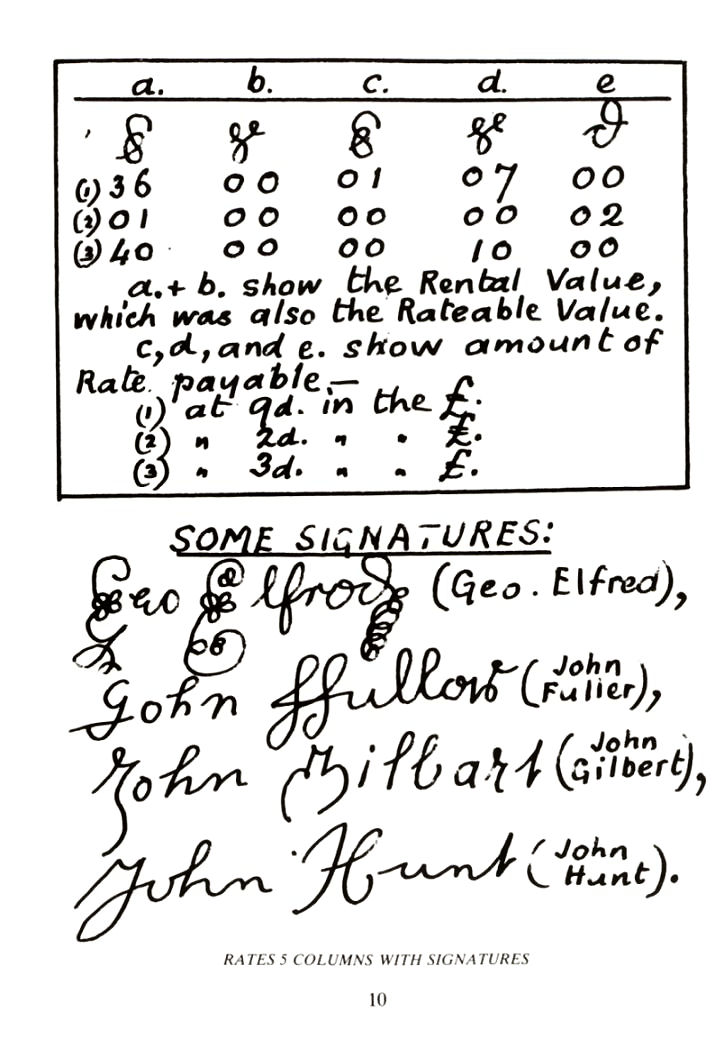 a. b. c. d. e
(1) 36 00 01 07 00
(2) 01 00 00 00 02
(3) 40 00 00 10 00
a.+ b. show the Rental Value,
which was also the Rateable Value.
c, d, and e. show amount of
Rate payable.—
(1) at 9d. in the £.
(2) " 2d. " " £.
(3) " 3d. " " £.
SOME SIGNATURES:
Geo Elfrod (Geo. Elfred),
John ffullor (John Fuller),
John Gilbart (John Gilbert),
John Hunt (John Hunt).
RATES 5 COLUMNS WITH SIGNATURES
10